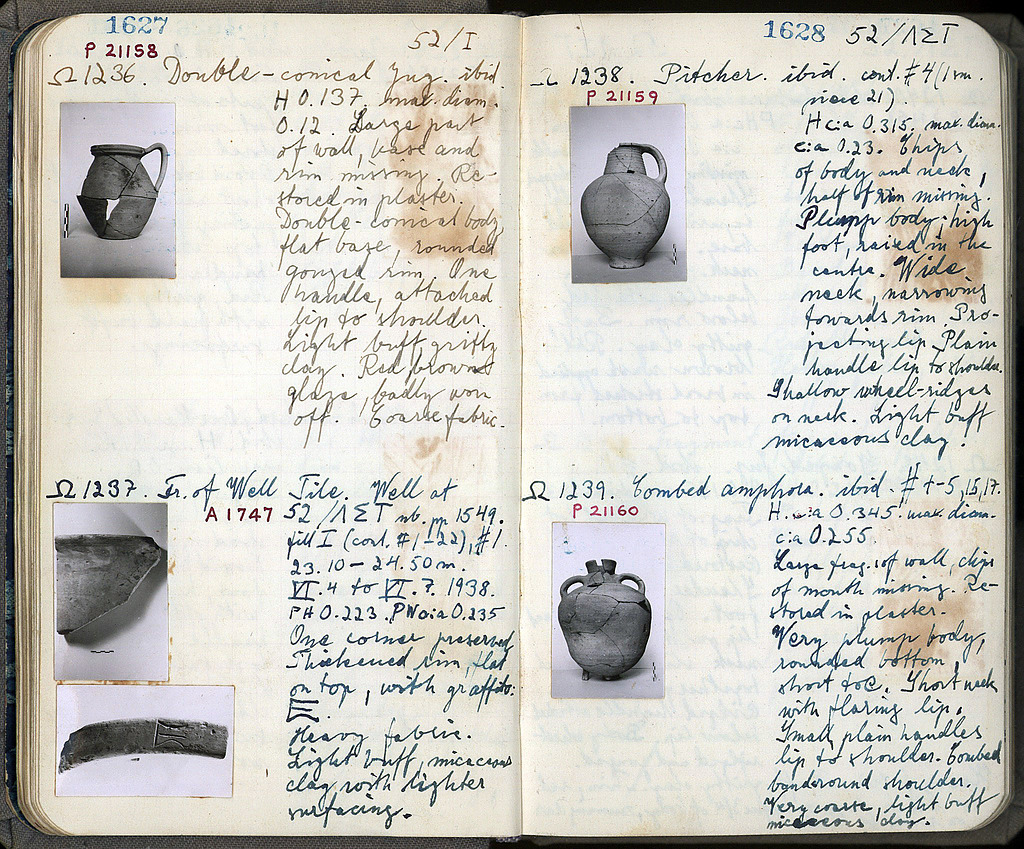 1627
52/I
P 21158
Ω 1236. Double-conical Jug. ibid
H 0.137. max. diam.
0.12. Large part
of wall, base and
rim missing. Re-
stored in plaster.
Double-conical body,
flat base, rounded
gouged rim. One
handle, attached
lip to shoulder.
Light buff gritty
clay. Red brown
glaze, badly worn
off. Coarse fabric.
Ω 1237. Fr. of Well Tile. Well at
A 1747 52/ΛΣΤ nb. pp. 1549.
fill I (cont. #1-22), #1.
23.10 – 24.50 m.
VI. 4 to VI. 7. 1938.
PH 0.223. PW c:a 0.235
One corner preserved,
Thickened rim, flat
on top, with graffito:
Heavy fabric.
Light buff, micaceous
clay, with lighter
surfacing.
1628 52/ΛΣΤ
Ω 1238. Pitcher. ibid. cont. #4 (1 sm.
P 21159 piece 21).
H c:a 0.315. max. diam.
c:a 0.23. Chips
of body and neck,
half of rim missing.
Plump body; high
foot, raised in the
centre. Wide
neck, narrowing
towards rim. Pro-
jecting lip. Plain
handle lip to shoulder.
Shallow wheel-ridges
on neck. Light buff
micaceous clay.
Ω 1239. Combed amphora. ibid. #4-5, 15, 17.
P 21160 H. c:a 0.345. max. diam.
c:a 0.255.
Large frag. of wall, chips
of mouth missing. Re-
stored in plaster.
Very plump body,
rounded bottom,
short toe. Short neck
with flaring lip.
Small plain handles
lip to shoulder. Combed
band round shoulder.
Very coarse, light buff
micaceous clay.